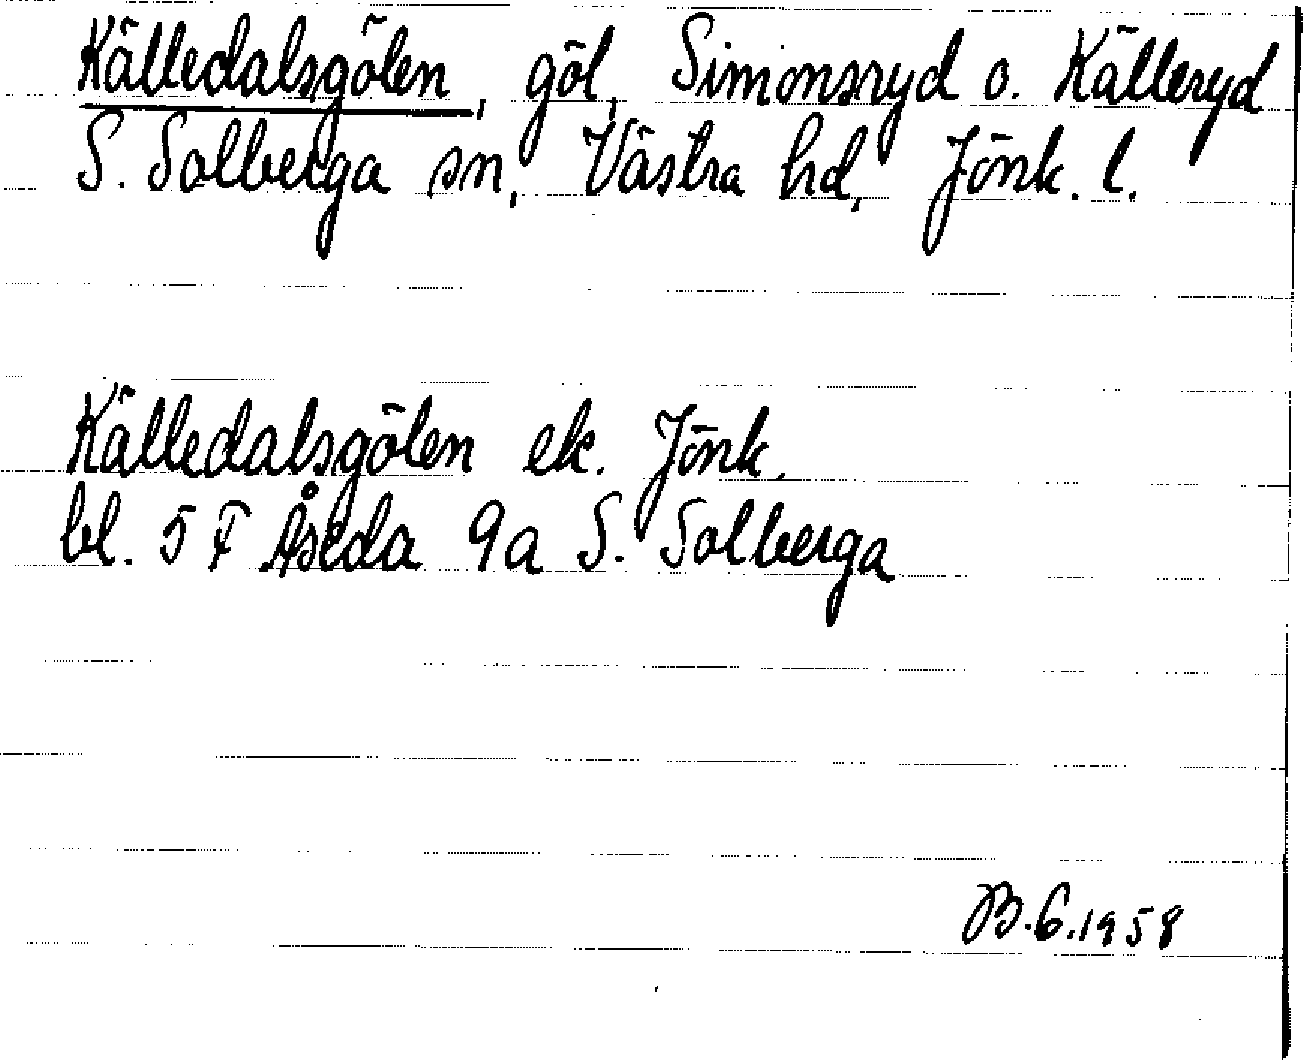 Källedalsgölen, göl, Simonsryd o. Källeryd
S. Solberga sn, Västra hd, Jönk. l.
Källedalsgölen ek. Jönk.
bl. 5 F Åseda 9a S. Solberga
B.G.1958